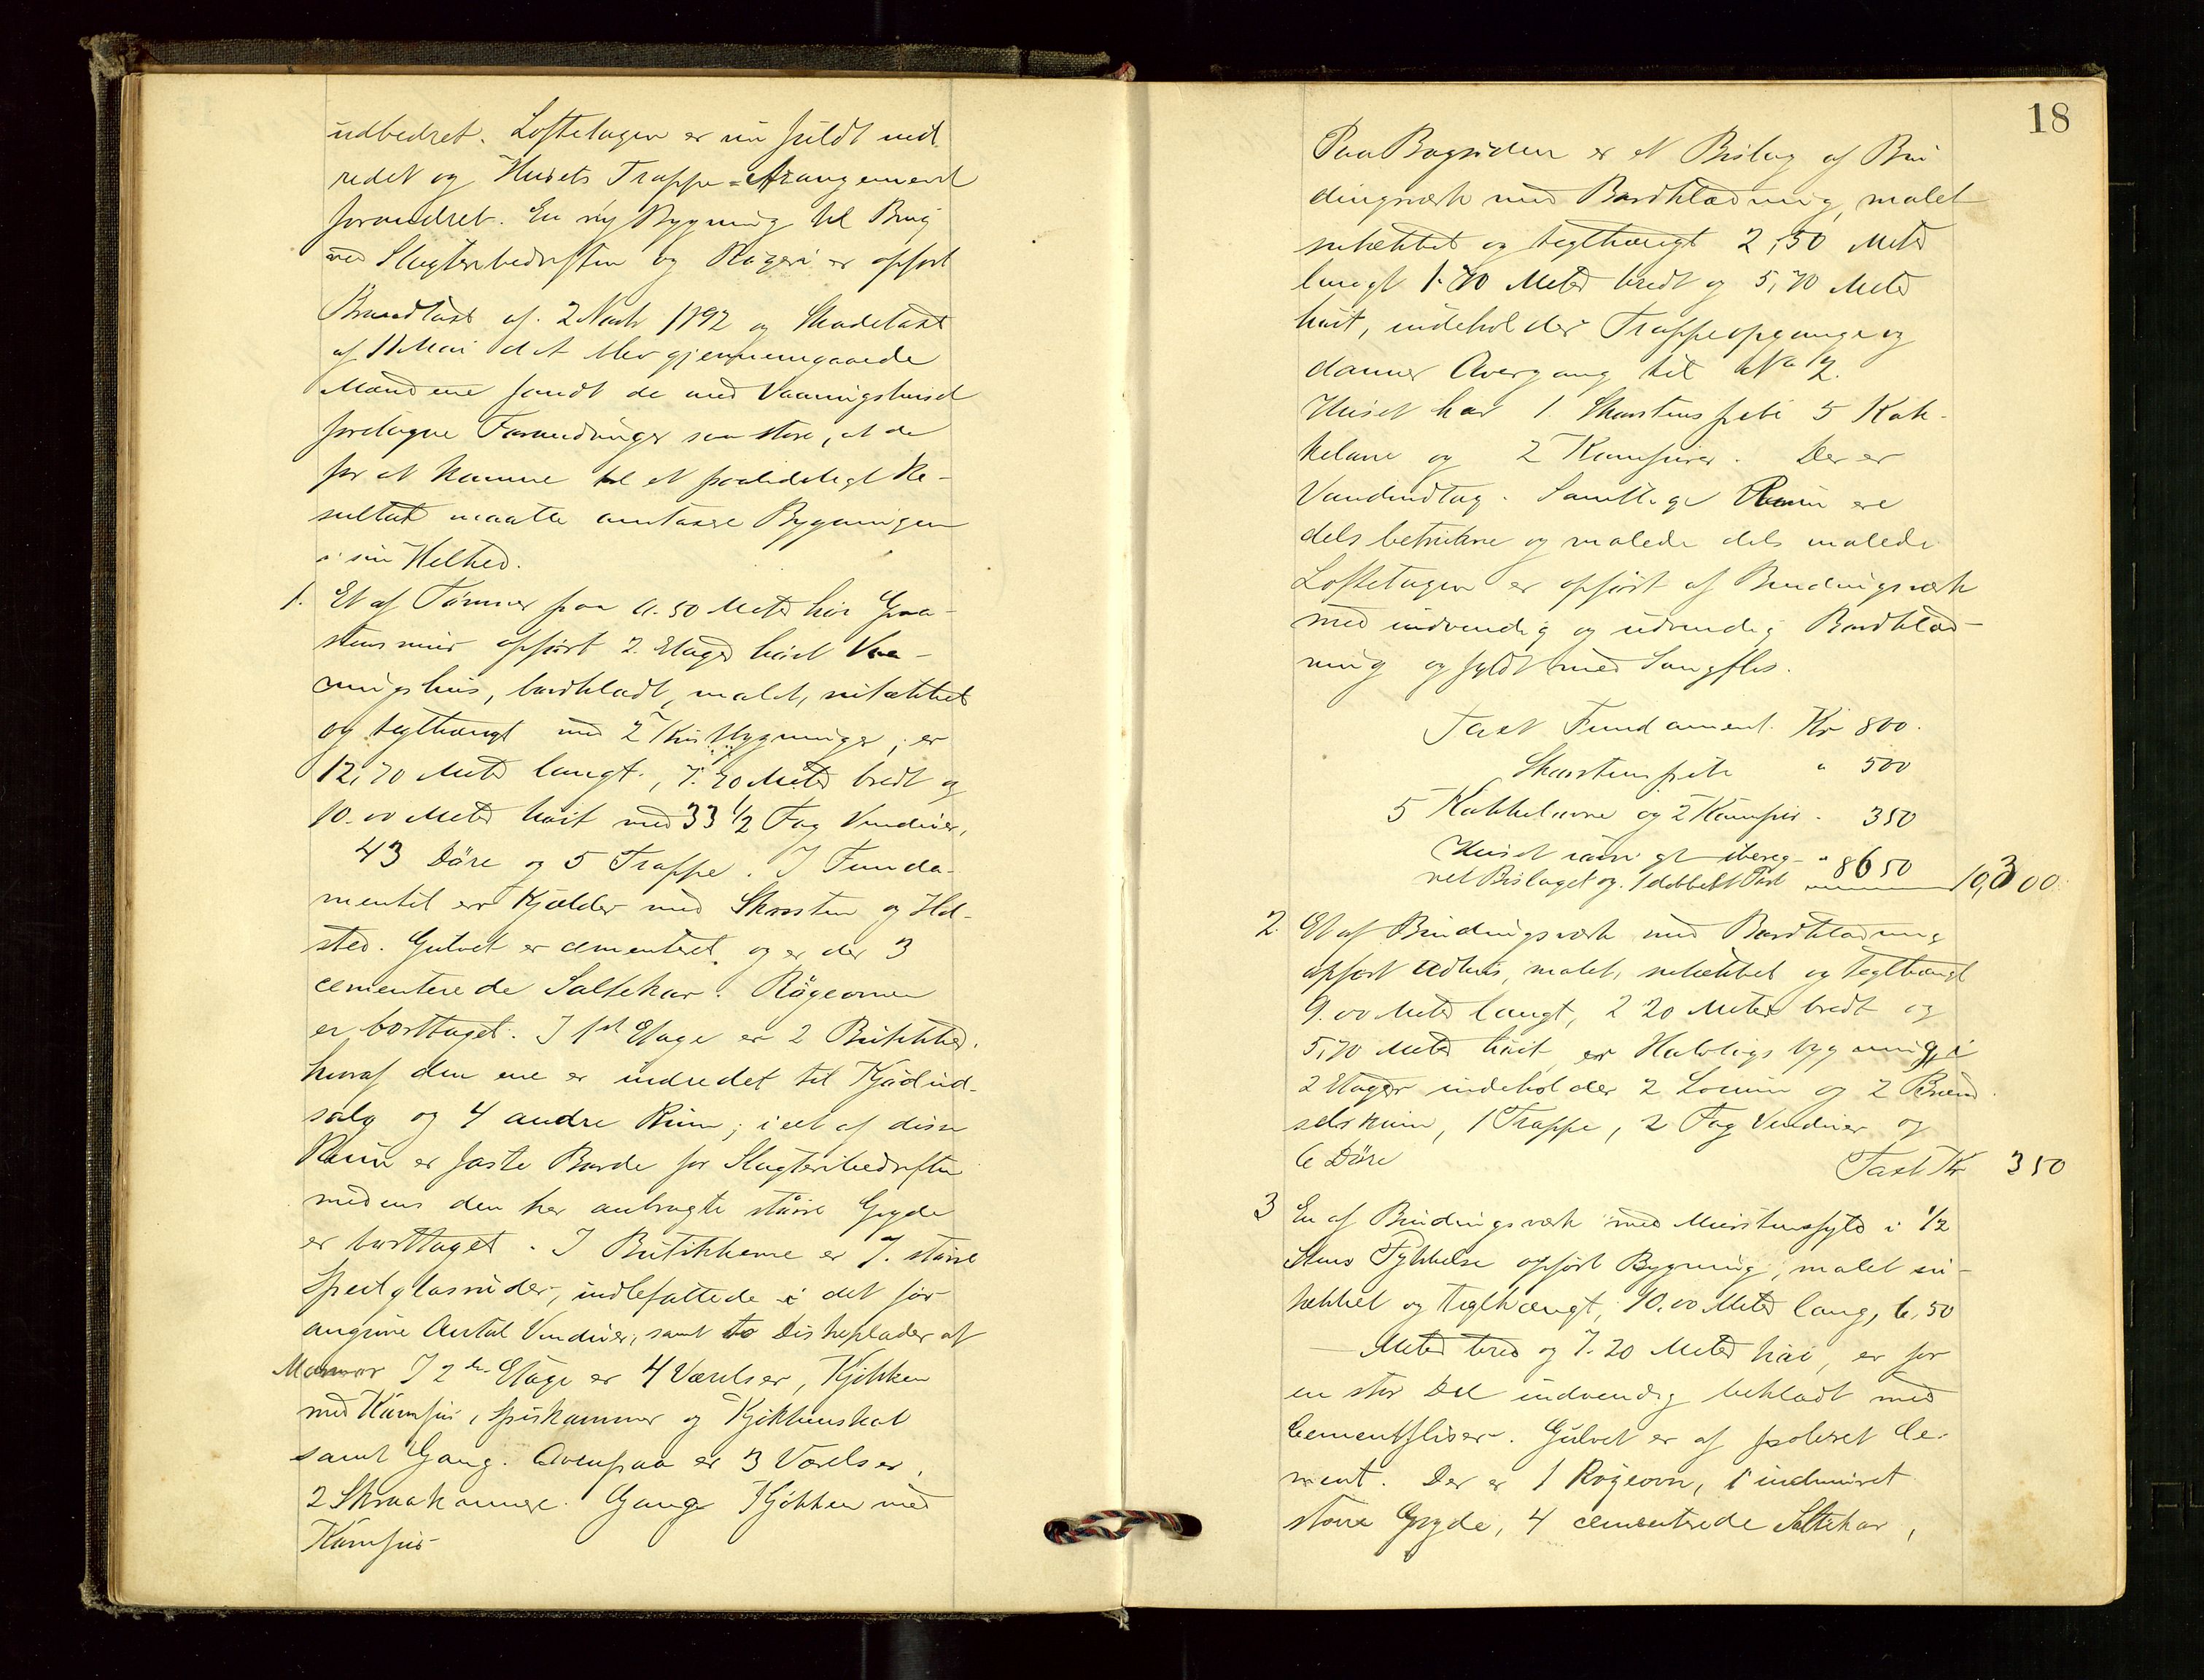 udbedret. Loftetagen er nu fuldt ind-
redet og Husets Trappe-Arangement
forandret. En ny Bygning til Brug
ved Slagteribedriften og Røgeri er opført
Brandtaxt af 2 Novbr 1892 og Skadetaxt
af 11 Mai d. A. blev gjennemgaaede
Mændene fandt de med Vaaningshuset
foretagne Forandringer saa store, at de
for at komme til et paalideligt Re-
sultat maatte omtaxere Bygningen
i sin Helhed.
1. Et af Tømmer paa 0.50 Meter høi Graa-
stensmur opført 2. Etages høit Vaa-
ningshus, bordklædt, malet, nitækket
og teglhængt med 2 Kvistbygninger, er
12,70 Meter langt, 7.70 Meter bredt og
10.00 Meter høit med 33 1/2 Fag Vinduer,
43 Døre og 5 Trappe. I Funda-
mentet er Kjælder med Skorsten og Ild-
sted. Gulvet er cementeret og er der 3
cementerede Saltekar. Røgeovnen
er borttaget. I 1ste Etage er 2 Butikker,
hvoraf den ene er indredet til Kjødud-
salg og 4 andre Rum; i et af disse
Rum er faste Borde for Slagteribedriften
medens den her anbragte større Gryde
er borttaget. I Butikkerne er 7. større
Speilglasruder, indbefattede i det før
angivne Antal Vinduer, samt to Diskeplader af
Marmor I 2den Etage er 4 Værelser, Kjøkken
med Komfur, Spiskammer og Kjøkkenskab
samt Gang. Ovenpaa er 3 Værelser,
2 Skraakamre. Gange Kjøkken med
Komfur
18
Paa Bagsiden er et Bislag af Bin
dingsværk med Bordklædning, malet
nitækket og teglhængt 2,50 Meter
langt 1.70 Meter bredt og 5,70 Meter
høit, indeholder Trappeopgange og
danner Overgang til No 2.
Huset har 1 Skorstenspibe 5 Kak-
kelovne og 2 Komfurer. Der er
Vandindtag. Samtlige Rum ere
dels betrukne og malede dels malede
Loftetagen er opført af Bindingsværk
med indvendig og udvendig Bordklæd-
ning og fyldt med Saugflis.
Taxt Fundament. Kr 800.
Skorstenspibe " 500
5 Kakkelovne og 2 Komfur - 350
Huset øvrigt ibereg- " 8650
net Bislaget og 1 dobbelt Port 10,300
2. Et af Bindingsværk med Bordklædning
opført Udhus, malet, nitækket og teglhængt
9.00 Meter langt, 2 20 Meter bredt og
5,70 Meter høit, er Halvtagsbygning, i
2 Etager indeholder 2 Locum og 2 Brænd
selsrum, 1 Trappe, 2 Fag Vinduer og
6 Døre Taxt Kr 350
3 En af Bindingsværk med Murstensfyld i 1/2
Stens Tykkelse opført Bygning, malet ni-
tækket og teglhængt, 10.00 Meter lang, 6,50
Meter bred og 7.20 Meter høi, er for
en stor Del indvendig beklædt med
Cementfliser. Gulvet er af poleret Ce-
ment. Der er 1 Røgeovn, 1 indmuret
større Gryde, 4 cementerede Saltekar,